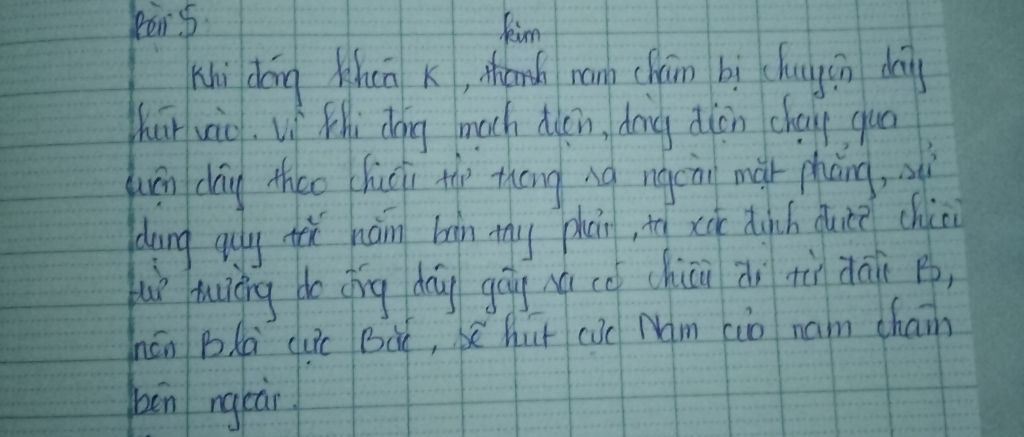 Bài 5
kim
Khi đóng khóa K, thanh nam châm bị chuyện dây
hút vào. Vì khi đóng mạch điện, dòng điện chạy qua
cuộn dây theo chiều từ trong ra ngoài mặt phẳng, sử
dụng quy tắc nắm bàn tay phải, ta xác định được chiều
từ trường do ống dây gây ra có chiều đi từ đầu B,
nên B là cực Bắc, sẽ hút cực Nam của nam châm
bên ngoài.